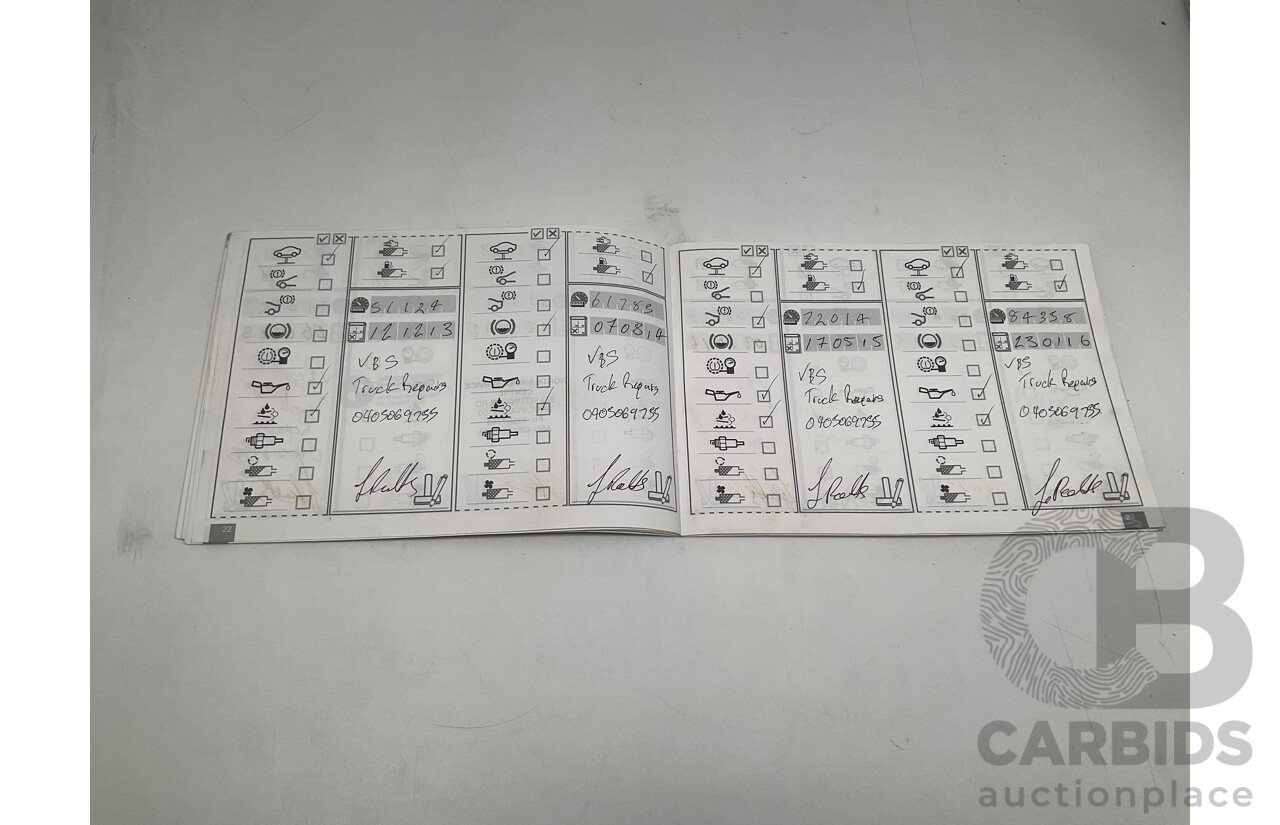 51124
121213
VBS
Truck Repairs
0405069755
61785
070814
VBS
Truck Repairs
0405069755
22
72014
170515
VBS
Truck Repairs
0405069755
84358
230116
VBS
Truck Repairs
0405069755
CB
CARBIDS
auctionplace